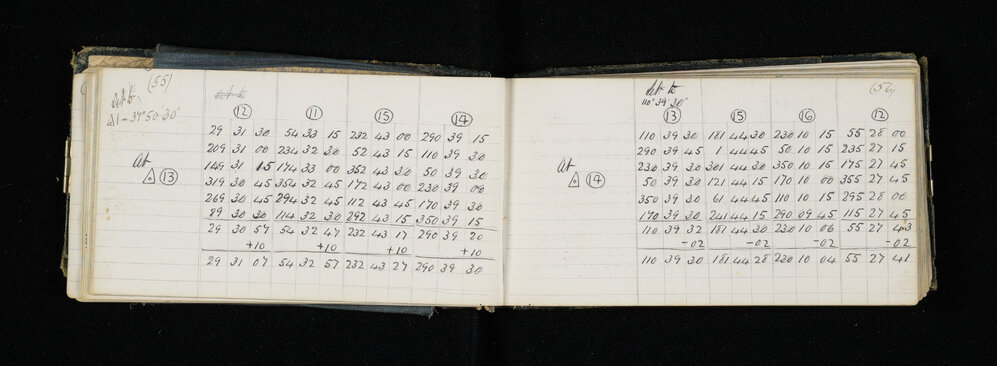 (55)
Set to
△1 - 37° 50' 30"
Set to
12 11 15 14
29 31 30 54 33 15 232 43 00 290 39 15
209 31 00 234 32 30 52 43 15 110 39 30
149 31 15 174 33 00 352 43 30 50 39 30
At
△ 13
319 30 45 354 32 45 172 43 00 230 39 00
269 30 45 294 32 45 112 43 45 170 39 30
89 30 30 114 32 30 292 43 15 350 39 15
29 30 57 54 32 47 232 43 17 290 39 20
+10 +10 +10 +10
29 31 07 54 32 57 232 43 27 290 39 30
(56)
Set to
110° 39' 30"
13 15 16 12
110 39 30 181 44 30 230 10 15 55 28 00
290 39 45 1 44 45 50 10 15 235 27 15
230 39 30 301 44 30 350 10 15 175 27 45
At
△ 14
50 39 30 121 44 15 170 10 00 355 27 45
350 39 30 61 44 45 110 10 15 295 28 00
170 39 30 241 44 15 290 09 45 115 27 45
110 39 32 181 44 30 230 10 06 55 27 43
-02 -02 -02 -02
110 39 30 181 44 28 230 10 04 55 27 41